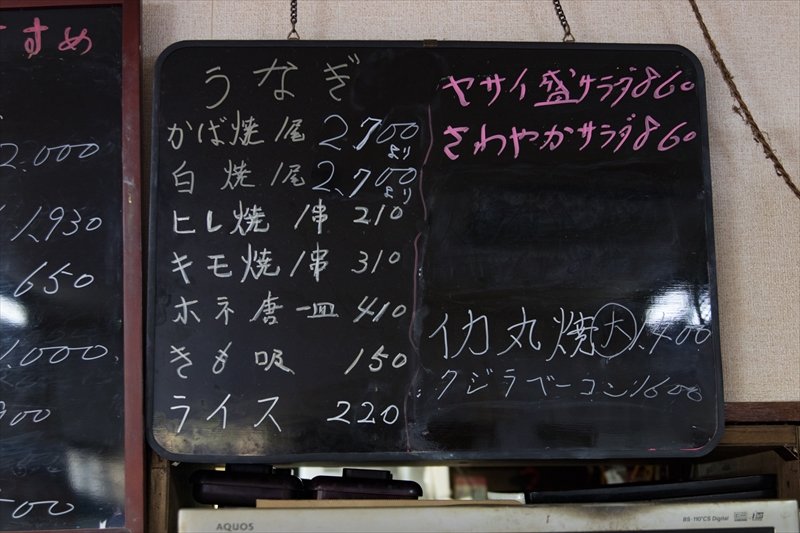 すすめ
2.000
1,930
650
1.000
900
500
うなぎ
かば焼 1尾 2,700より
白焼 1尾 2,700より
ヒレ焼 1串 210
キモ焼 1串 310
ホネ唐 一皿 410
きも吸 150
ライス 220
ヤサイ盛サラダ 860
さわやかサラダ 860
イカ丸焼 大 1,400
クジラベーコン 1600
AQUOS
BS・110°CS Digital